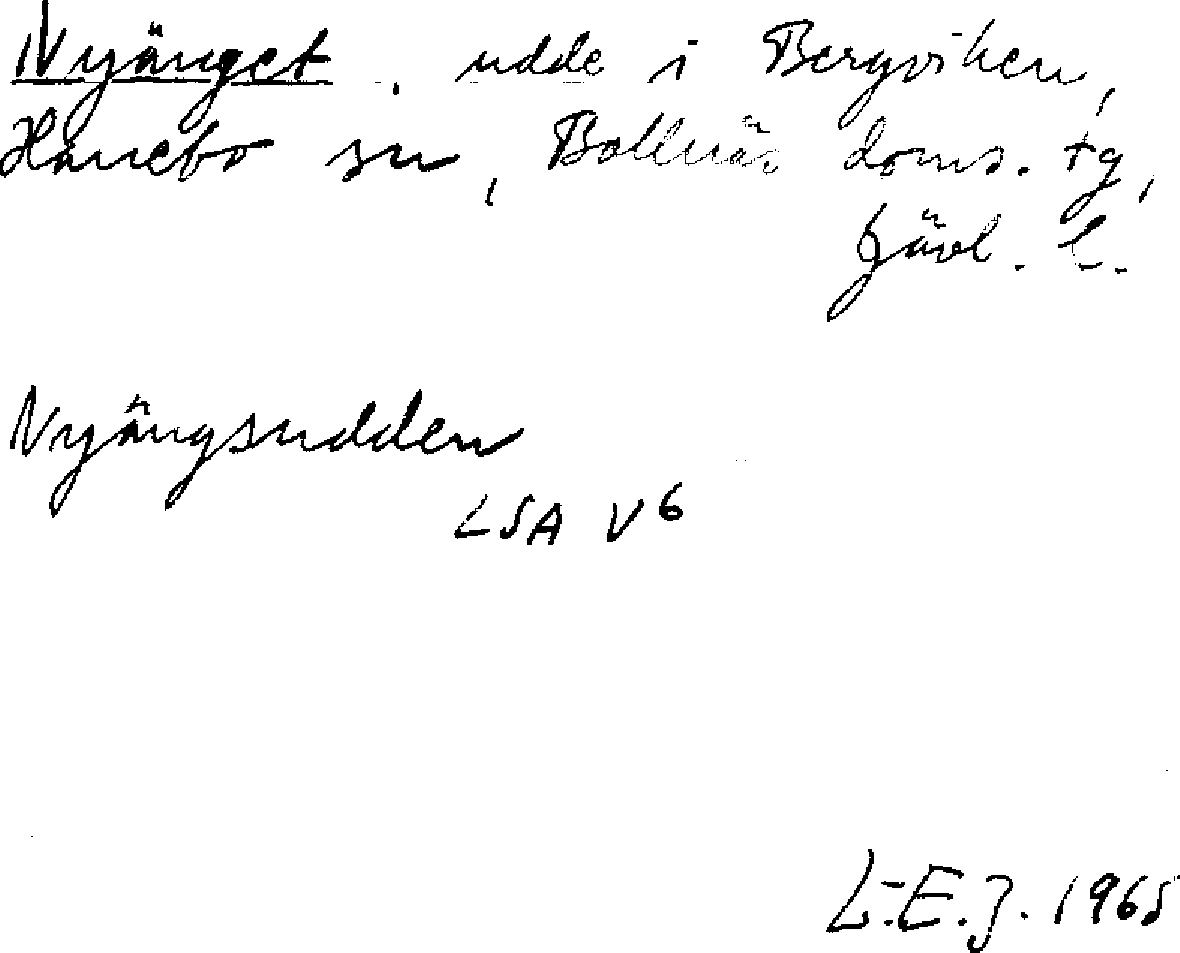 Nyänget, udde i Bergviken,
Hanebo sn, Bollnäs doms. tg,
Gävl. l.
Nyängsudden
LSA V6
L.-E.J. 1965